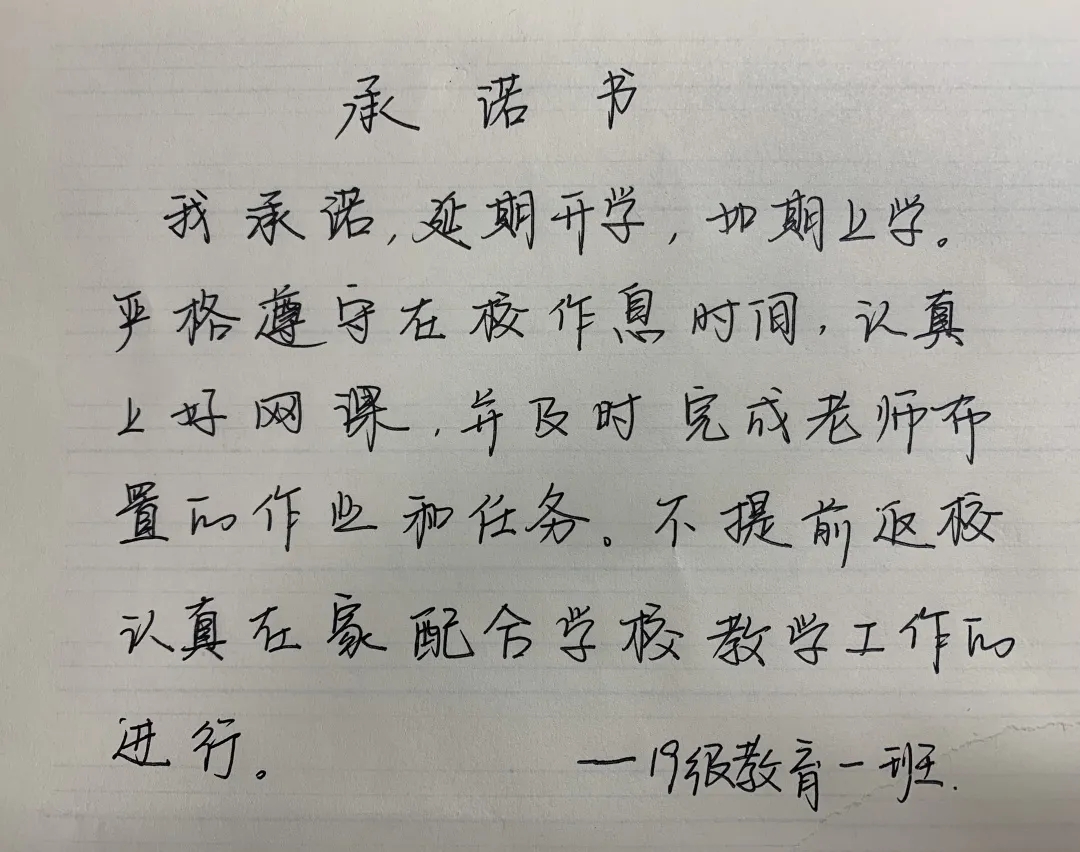 承诺书
我承诺,延期开学,如期上学。
严格遵守在校作息时间,认真
上好网课,并及时完成老师布
置的作业和任务。不提前返校
认真在家配合学校教学工作的
进行。
—19级教育一班.